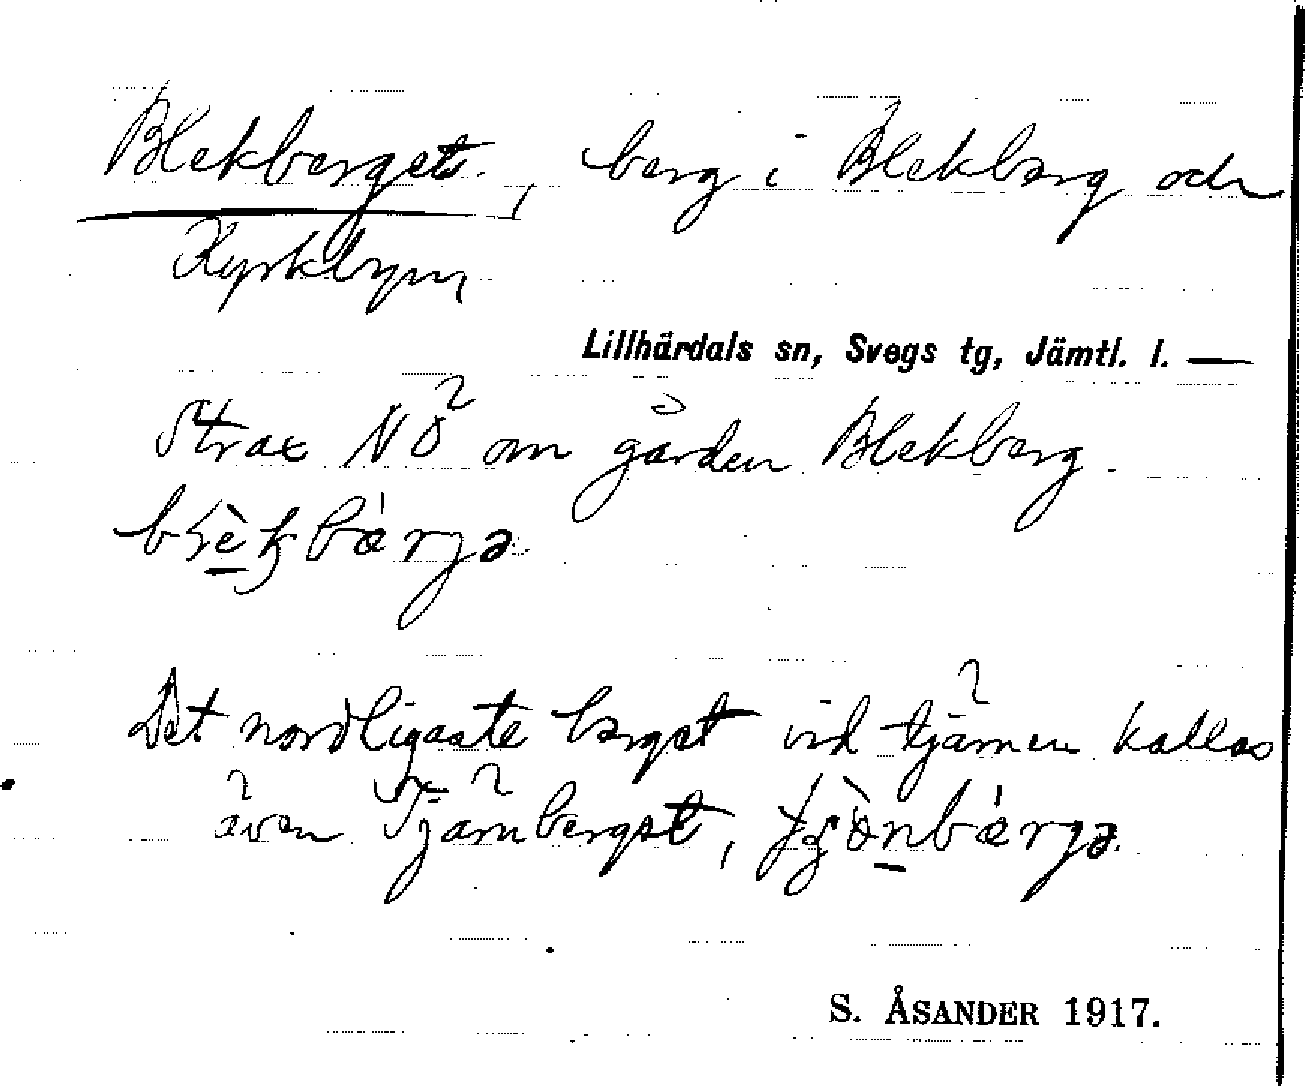 Blekberget, berg i Blekberg och
Kyrkbyn
Lillhärdals sn, Svegs tg, Jämtl. l. —
Strax NÖ om gården Blekberg.
Det nordligaste berget vid tjärnen kallas
även Tjärnberget,
S. ÅSANDER 1917.